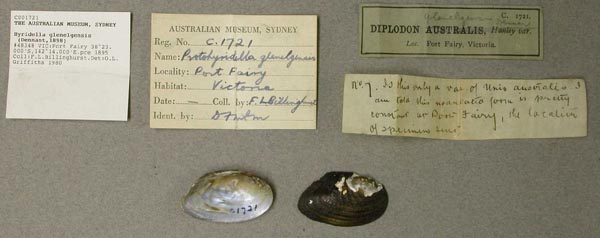 C001721
THE AUSTRALIAN MUSEUM, SYDNEY
Hyridella glenelgensis
(Dennant,1898)
448248 VIC:Port Fairy 38°23.
000'S,142°14.000'E.pre 1895
Coll:F.L.Billinghurst.Det:O.L.
Griffiths 1980
AUSTRALIAN MUSEUM, SYDNEY
Reg. No. C.1721
Name: Protohyridella glenelgensis
Locality: Port Fairy
Habitat: Victoria
Date: — Coll. by: F.L. Billinghurst
Ident. by:
glenelgensis C. 1721.
DIPLODON AUSTRALIS, Hanley var.
Loc. Port Fairy, Victoria.
No 7. Is this only a var of Unio australis. I
am told this form is pretty
constant at Port Fairy, the location
of specimens sent
C.1721